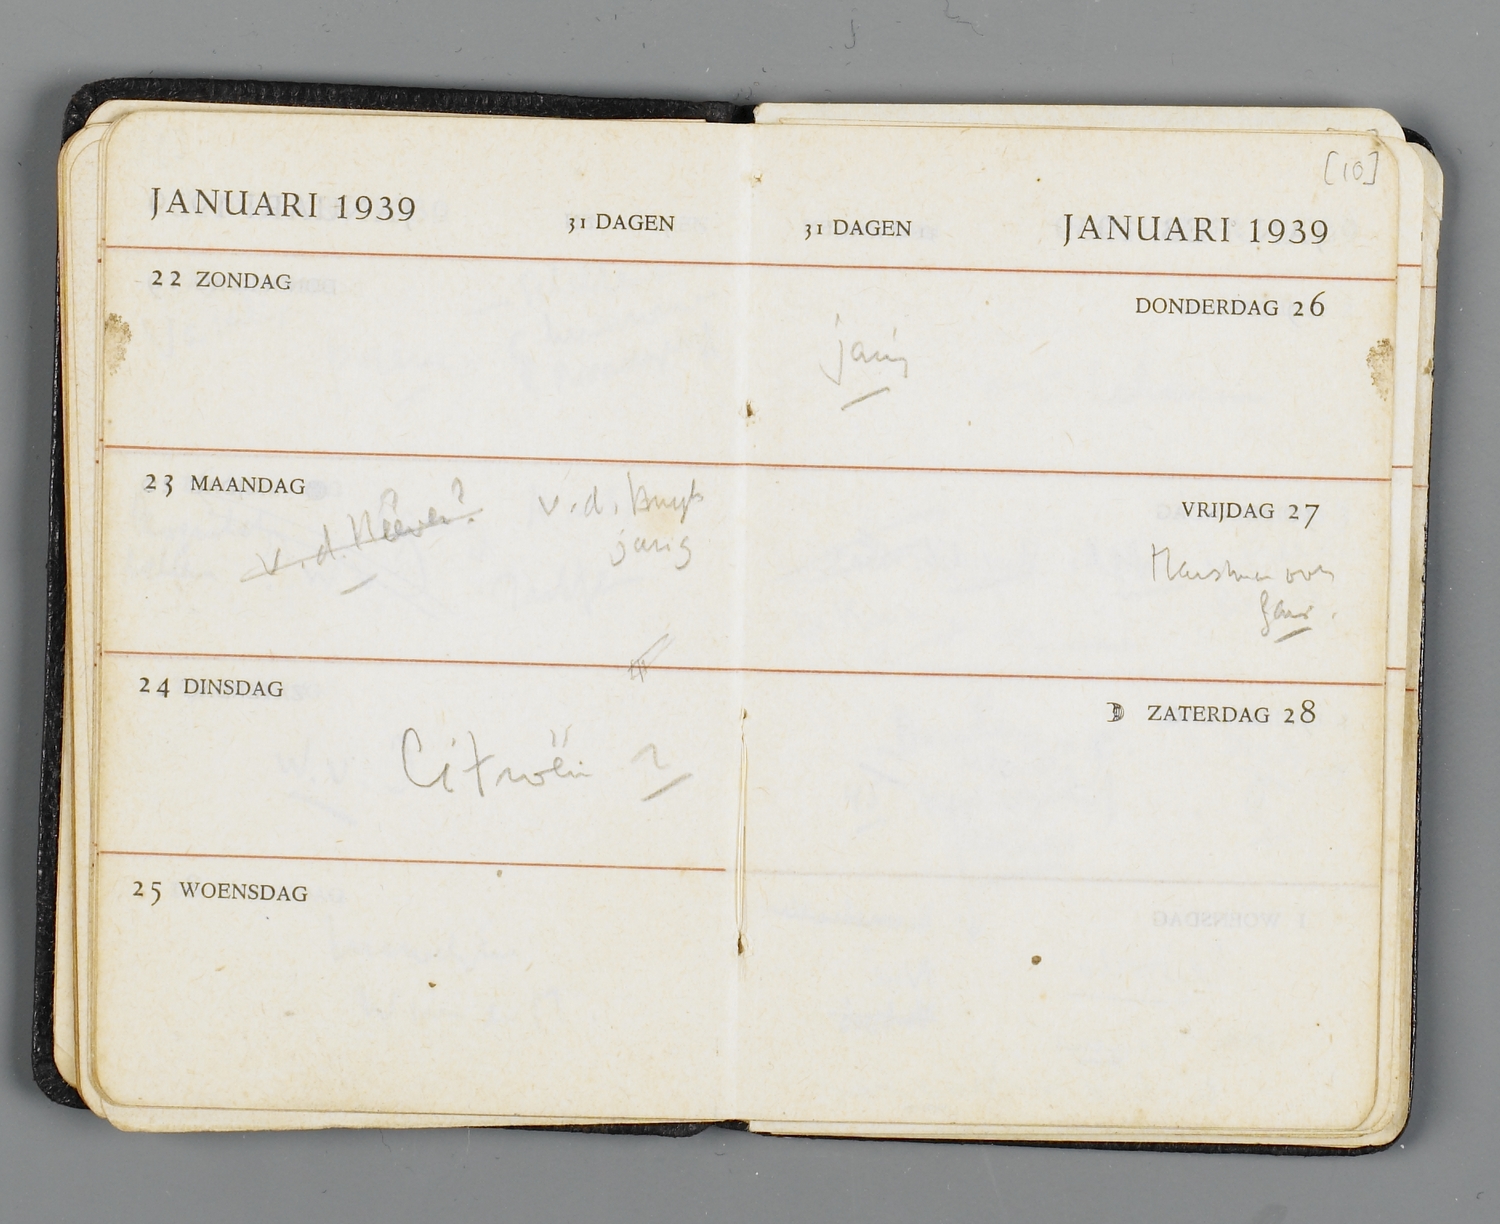 JANUARI 1939
31 DAGEN
22 ZONDAG
23 MAANDAG
v.d.
?
v.d.
jarig
24 DINSDAG
Citroën ?
25 WOENSDAG
[10]
31 DAGEN
JANUARI 1939
DONDERDAG 26
jarig
VRIJDAG 27
ZATERDAG 28